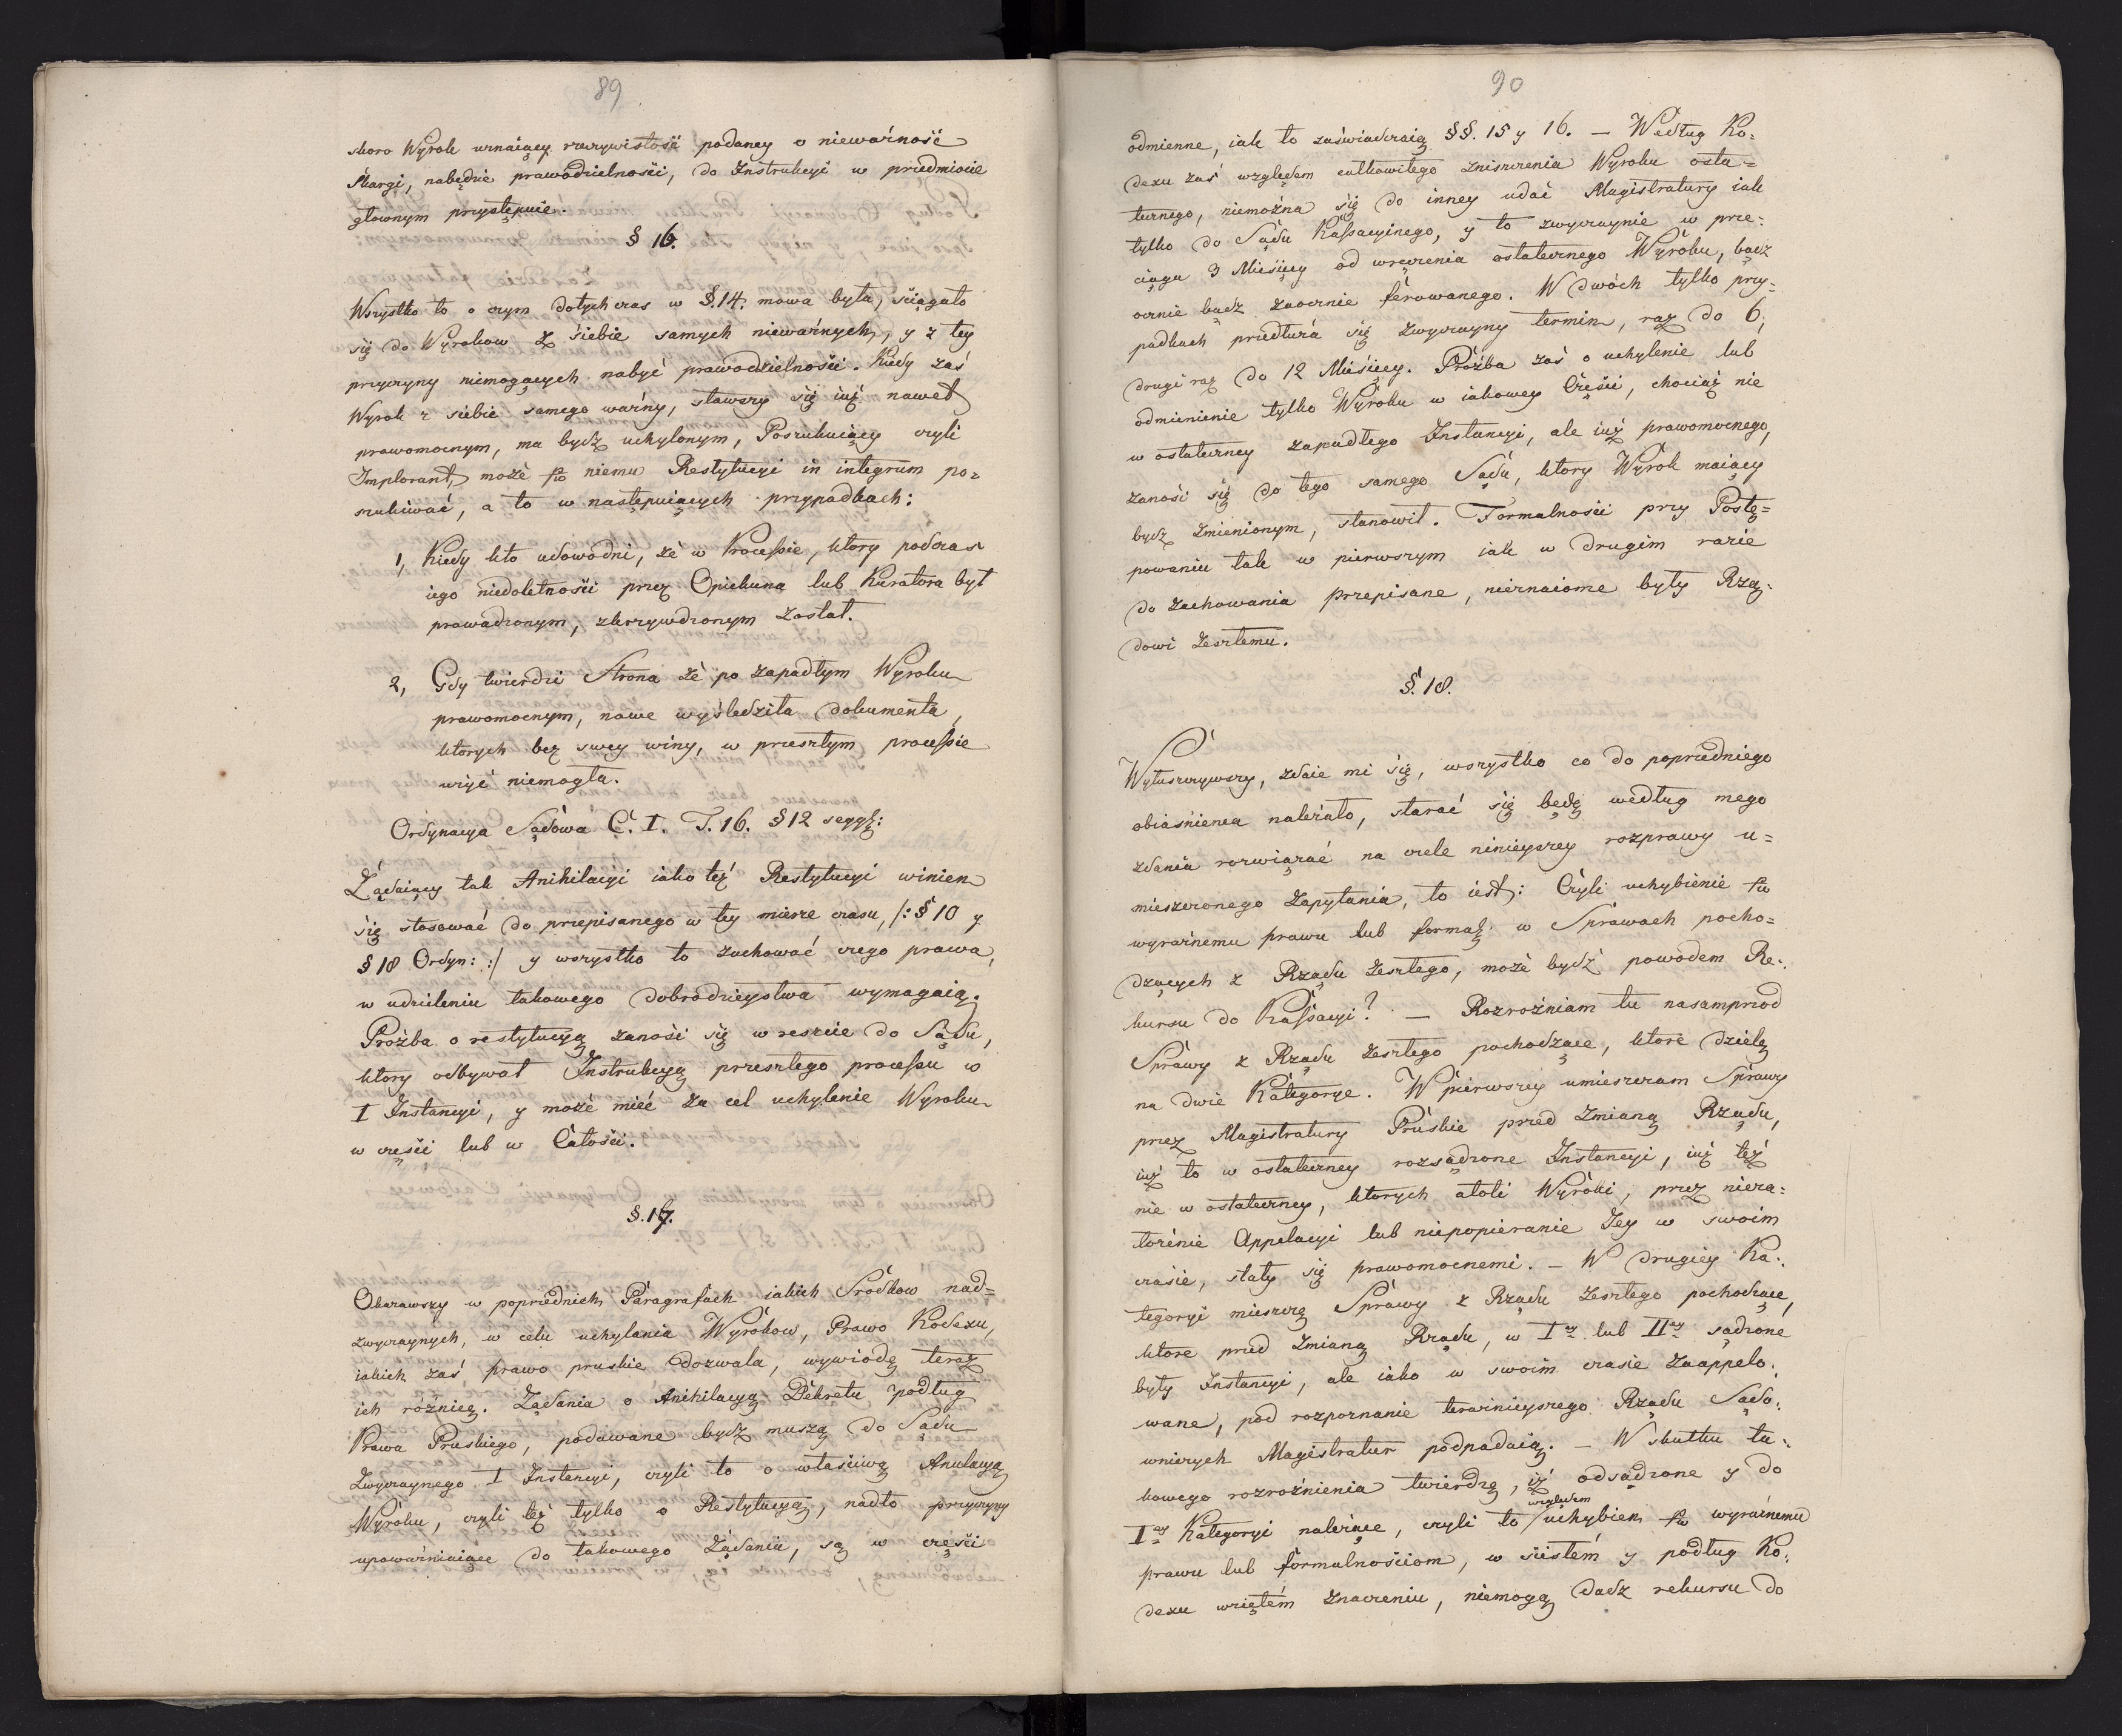 89
skoro Wyrok uznaiący rzeczywistość podaney o nieważność
skargi, nabędzie prawodzielności, do Instrukcyi w przedmiocie
głownym przystępuie.
§ 16.
Wszystko to o czym dotychczas w §. 14. mowa była, ściągało
się do Wyrokow z siebie samych nieważnych, y z tey
przyczyny niemogących nabyć prawodzielności. Kiedy zaś
Wyrok z siebie samego ważny, stawszy się iuż nawet
prawomocnym, ma bydź uchylonym, Poszukuiący czyli
Implorant, może pko niemu Restytucyi in integrum po=
szukiwać, a to w następuiących przypadkach:
1, Kiedy kto udowodni, że w Processie, ktory podczas
iego niedoletności przez Opiekuna lub Kuratora był
prowadzonym, zkrzywdzonym został.
2, Gdy twierdzi Strona że po zapadłym Wyroku
prawomocnym, nowe wyśledziła dokumenta,
ktorych bez swey winy, w przeszłym processie
użyć niemogła.
Ordynacya Sądowa C. I. T. 16. § 12 seqq:
Żądaiący tak Anihilacyi iako też Restytucyi winien
się stosować do przepisanego w tey mierze czasu, /: § 10 y
§ 18 Ordyn: :/ y wszystko to zachować czego prawa,
w udzieleniu takowego dobrodzieystwa wymagaią.
Proźba o restytucyą zanosi się w reszcie do Sądu,
ktory odbywał Instrukcyą przeszłego processu w
I Instancyi, y może mieć za cel uchylenie Wyroku
w części lub w Całości.
§. 17.
Okazawszy w poprzednich Paragrafach iakich Srodkow nad=
zwyczaynych, w celu uchylania Wyrokow, Prawo Kodexu,
iakich zaś prawo pruskie dozwala, wywiodę teraz
ich różnicę. Żądania o Anihilacyą Dekretu podług
Prawa Pruskiego, podawane bydź muszą do Sądu
Zwyczaynego I Instancyi, czyli to o właściwą Anulacyą
Wyroku, czyli też tylko o Restytucyą, nadto przyczyny
upoważniaiące do takowego Żądania, są w części
90
odmienne, iak to zaświadczaią §§. 15 y 16. — Według Ko=
dexu zaś względem całkowitego zniszczenia Wyroku osta=
tecznego, niemożna się do inney udać Magistratury iak
tylko do Sądu Kassacyinego, y to zwyczaynie w prze=
ciągu 3 Miesięcy od wręczenia ostatecznego Wyroku, bądz
ocznie bądz zaocznie ferowanego. W dwóch tylko przy=
padkach przedłuża się zwyczayny termin, raz do 6,
drugi raz do 12 Miesięcy. Prożba zaś o uchylenie lub
odmienienie tylko Wyroku w iakowey Części, chociaż nie
w ostateczney zapadłego Instancyi, ale iuż prawomocnego,
zanosi się do tego samego Sądu, ktory Wyrok maiący
bydz zmienionym, stanowił. Formalności przy Postę=
powaniu tak w pierwszym iak w drugim razie
do zachowania przepisane, nieznaiome były Rzą=
dowi Zeszłemu.
§. 18.
Wyłuszczywszy, zdaie mi się, wszystko co do poprzedniego
obiaśnienia należało, starać się będę według mego
zdania rozwiązać na czele ninieyszey rozprawy u=
mieszczonego Zapytania, to iest: Czyli uchybienie pko
wyraźnemu prawu lub formal: w Sprawach pocho=
dzących z Rządu Zeszłego, może bydź powodem Re=
kursu do Kassacyi? — Rozrożniam tu nasamprzod
Sprawy z Rządu Zeszłego pochodzące, ktore dzielę
na dwie Kategorye. W pierwszey umieszczam Sprawy
przez Magistratury Pruskie przed Zmianą Rządu,
iuż to w ostateczney rozsądzone Instancyi, iuż też
nie w ostateczney, ktorych atoli Wyroki, przez nieza=
łożenie Appelacyi lub niepopieranie Jey w swoim
czasie, stały się prawomocnemi. — W drugiey Ka=
tegoryi mieszczę Sprawy z Rządu Zeszłego pochodzące,
ktore przed zmianą Rządu, w Iey lub IIey sądzone
były Instancyi, ale iako w swoim czasie zaappelo=
wane, pod rozpoznanie teraźnieyszego Rządu Sądo=
wniczych Magistratur podpadaią. — W skutku ta=
kowego rozrożnienia twierdzę, iż odsądzone y do
Iey Kategoryi należące, czyli to względem uchybien pko wyraźnemu
prawu lub formalnościom, w ścisłem y podług Ko=
dexu wziętém znaczeniu, niemogą dadz rekursu do